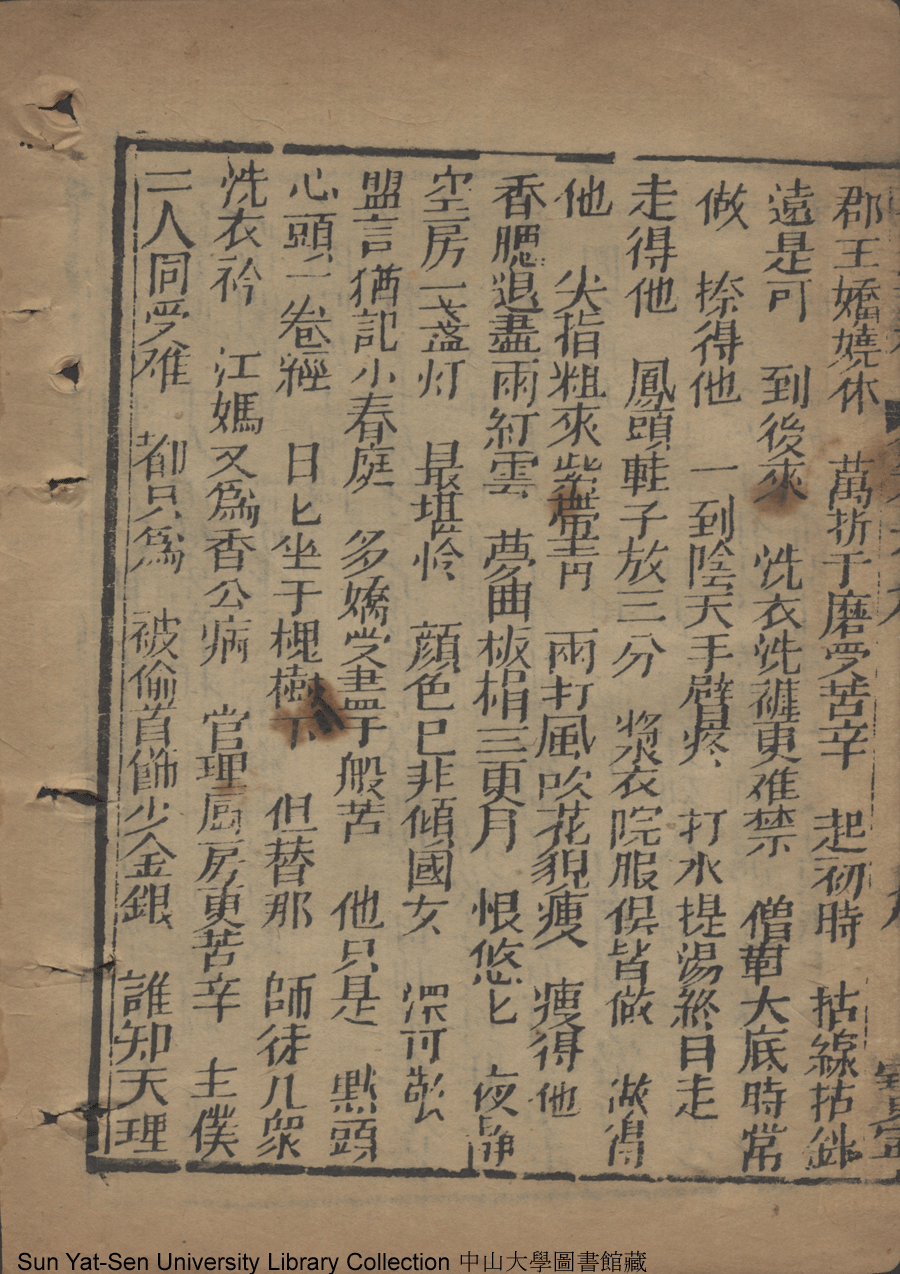 郡王嬌嬈休　萬折千磨受苦辛　起初時　拈線拈針
遠是可　到後來　洗衣洗褲更难禁　僧鞋大底時常
做　捺得他　一到陰天手臂疼　打水提湯終日走
走得他　鳳頭鞋子放三分　漿衣院服俱皆做　做得
他　尖指粗來紫帶青　雨打風吹花貌瘦　瘦得他
香腮退盡兩紅雲　夢曲板梢三更月　恨悠匕　夜静
空房一盞灯　最堪怜　顔色已非傾國女　深可歎
盟言猶記小春庭　多嬌受盡千般苦　他只是　點頭
心頭一卷經　日匕坐于槐樹下　但替那　師徒几衆
洗衣衿　江媽又爲香公病　官理厨房更苦辛　主僕
二人同受难　都只爲　被偷首飾少金銀　誰知天理
Sun Yat-Sen University Library Collection 中山大學圖書館藏